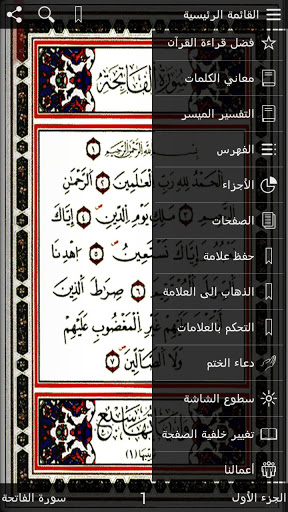 القائمة الرئيسية
فضل قراءة القرآن
معاني الكلمات
التفسير الميسر
الفهرس
الأجزاء
الصفحات
حفظ علامة
الذهاب الى العلامة
التحكم بالعلامات
دعاء الختم
سطوع الشاشة
تغيير خلفية الصفحة
أعمالنا
سُورَةُ الْفَاتِحَةِ
بِسْمِ اللَّهِ الرَّحْمَٰنِ الرَّحِيمِ ١
الْحَمْدُ لِلَّهِ رَبِّ الْعَٰلَمِينَ ٢ الرَّحْمَٰنِ
الرَّحِيمِ ٣ مَٰلِكِ يَوْمِ الدِّينِ ٤ إِيَّاكَ
وَإِيَّاكَ نَسْتَعِينُ ٥ اهْدِنَا
٦ صِرَٰطَ الَّذِينَ
غَيْرِ الْمَغْضُوبِ عَلَيْهِمْ
وَلَا الضَّالِّينَ ٧
الجزء الأول
1
سورة الفاتحة